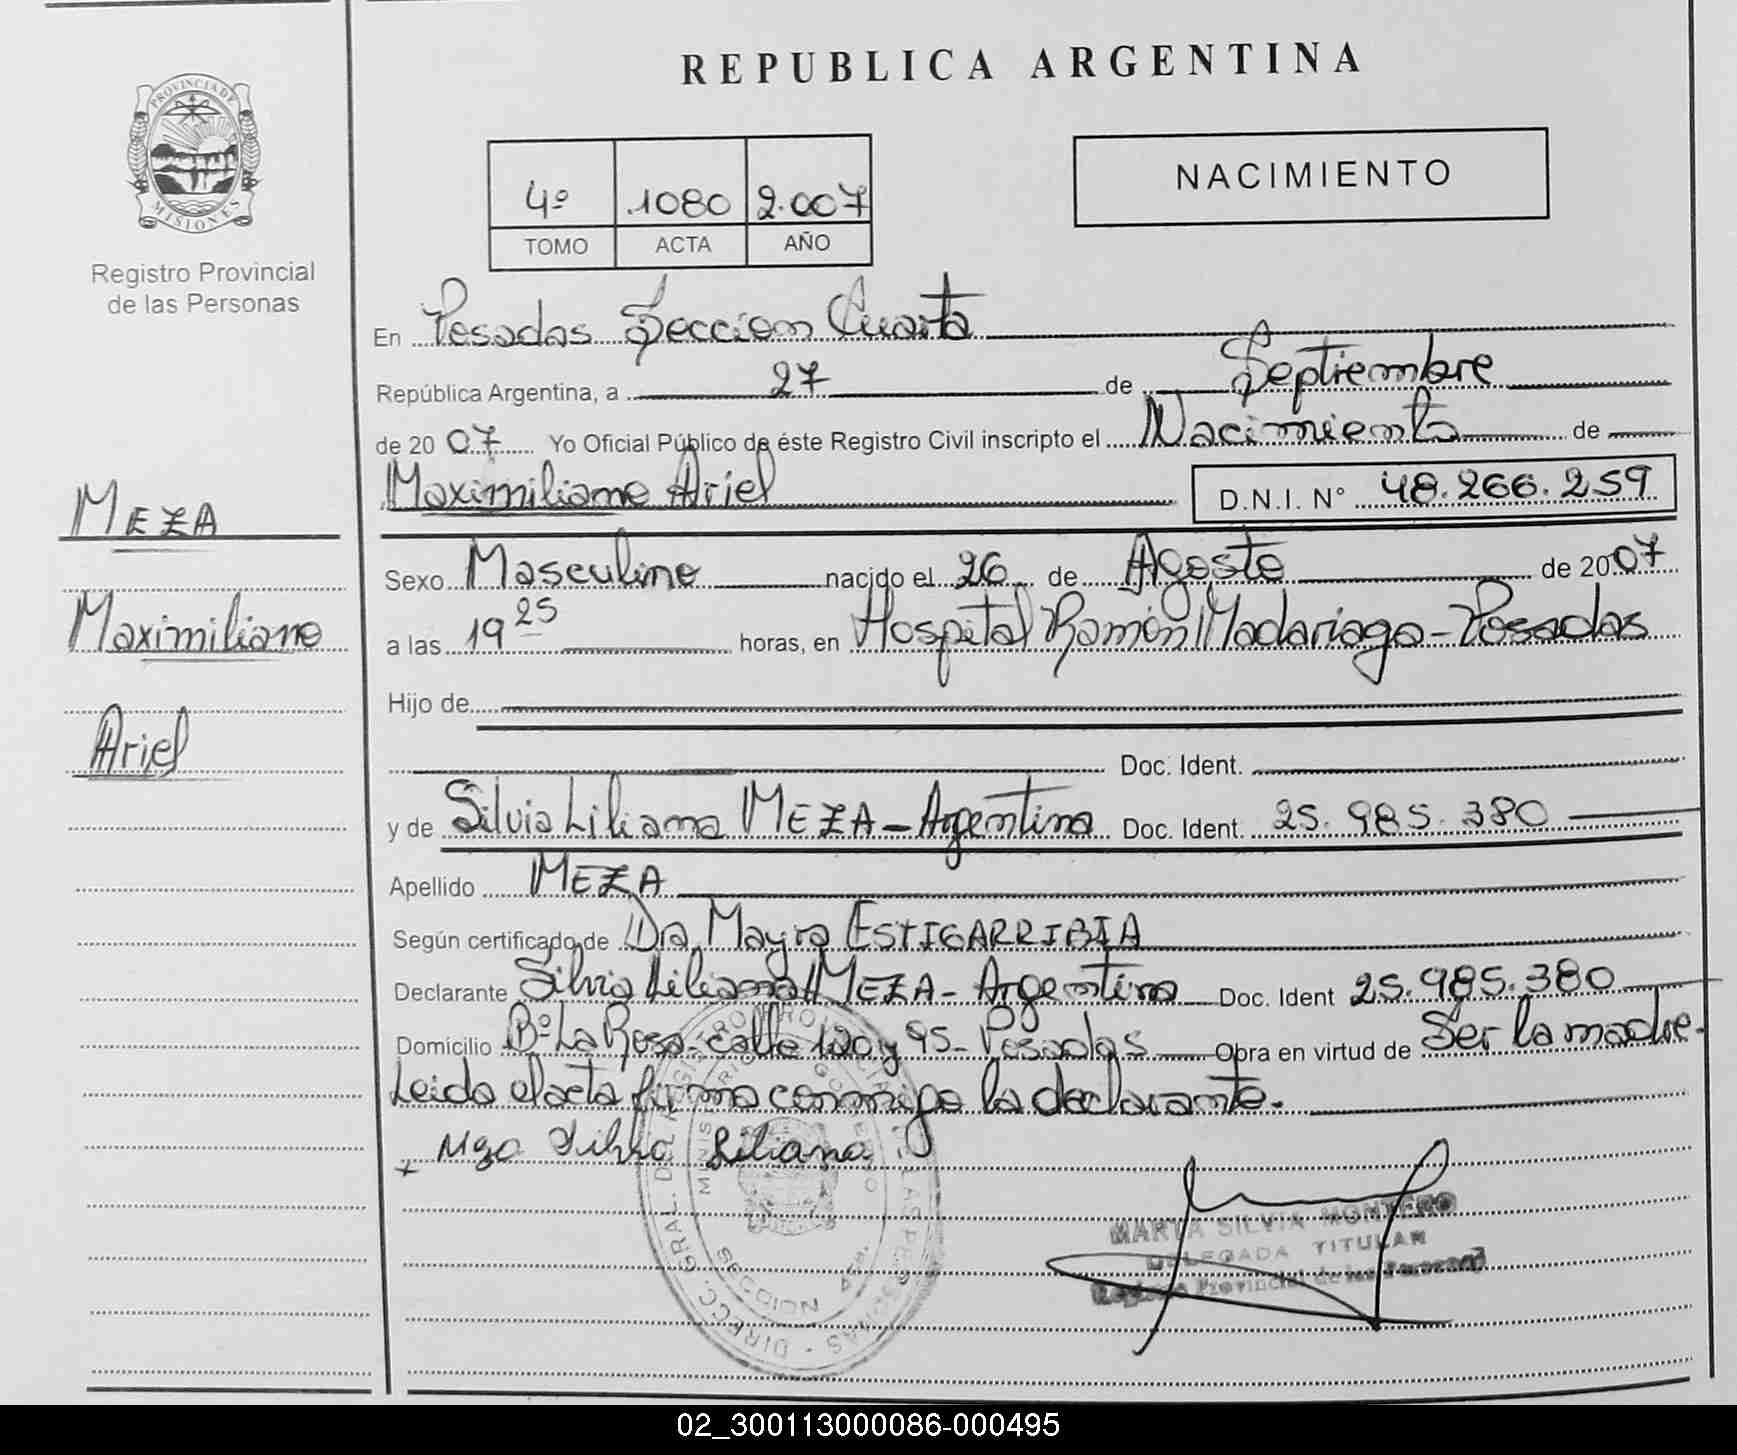 REPUBLICA ARGENTINA
PROVINCIA DE
MISIONES
Registro Provincial
de las Personas
4º 1080 2.007
TOMO ACTA AÑO
NACIMIENTO
En Posadas Seccion Cuarta
República Argentina, a 27 de Septiembre
de 2007 Yo Oficial Público de éste Registro Civil inscripto el Nacimiento de
Maximiliano Ariel D.N.I. Nº 48.266.259
MEZA
Maximiliano
Ariel
Sexo Masculino nacido el 26 de Agosto de 2007
a las 19 25 horas, en Hospital Ramón Madariaga - Posadas
Hijo de
Doc. Ident.
y de Silvia Liliana MEZA - Argentina Doc. Ident. 25.985.380
Apellido MEZA
Según certificado de Dra Mayra ESTIGARRIBIA
Declarante Silvia Liliana MEZA - Argentina Doc. Ident 25.985.380
Domicilio Bº La Rosa - calle 120 y 95 - Posadas Obra en virtud de Ser la madre.
Leida el acta firma conmigo la declarante.
Silvia Liliana
MARTA SILVIA MONTERO
DELEGADA TITULAR
Registro Provincial de las Personas
02_300113000086-000495